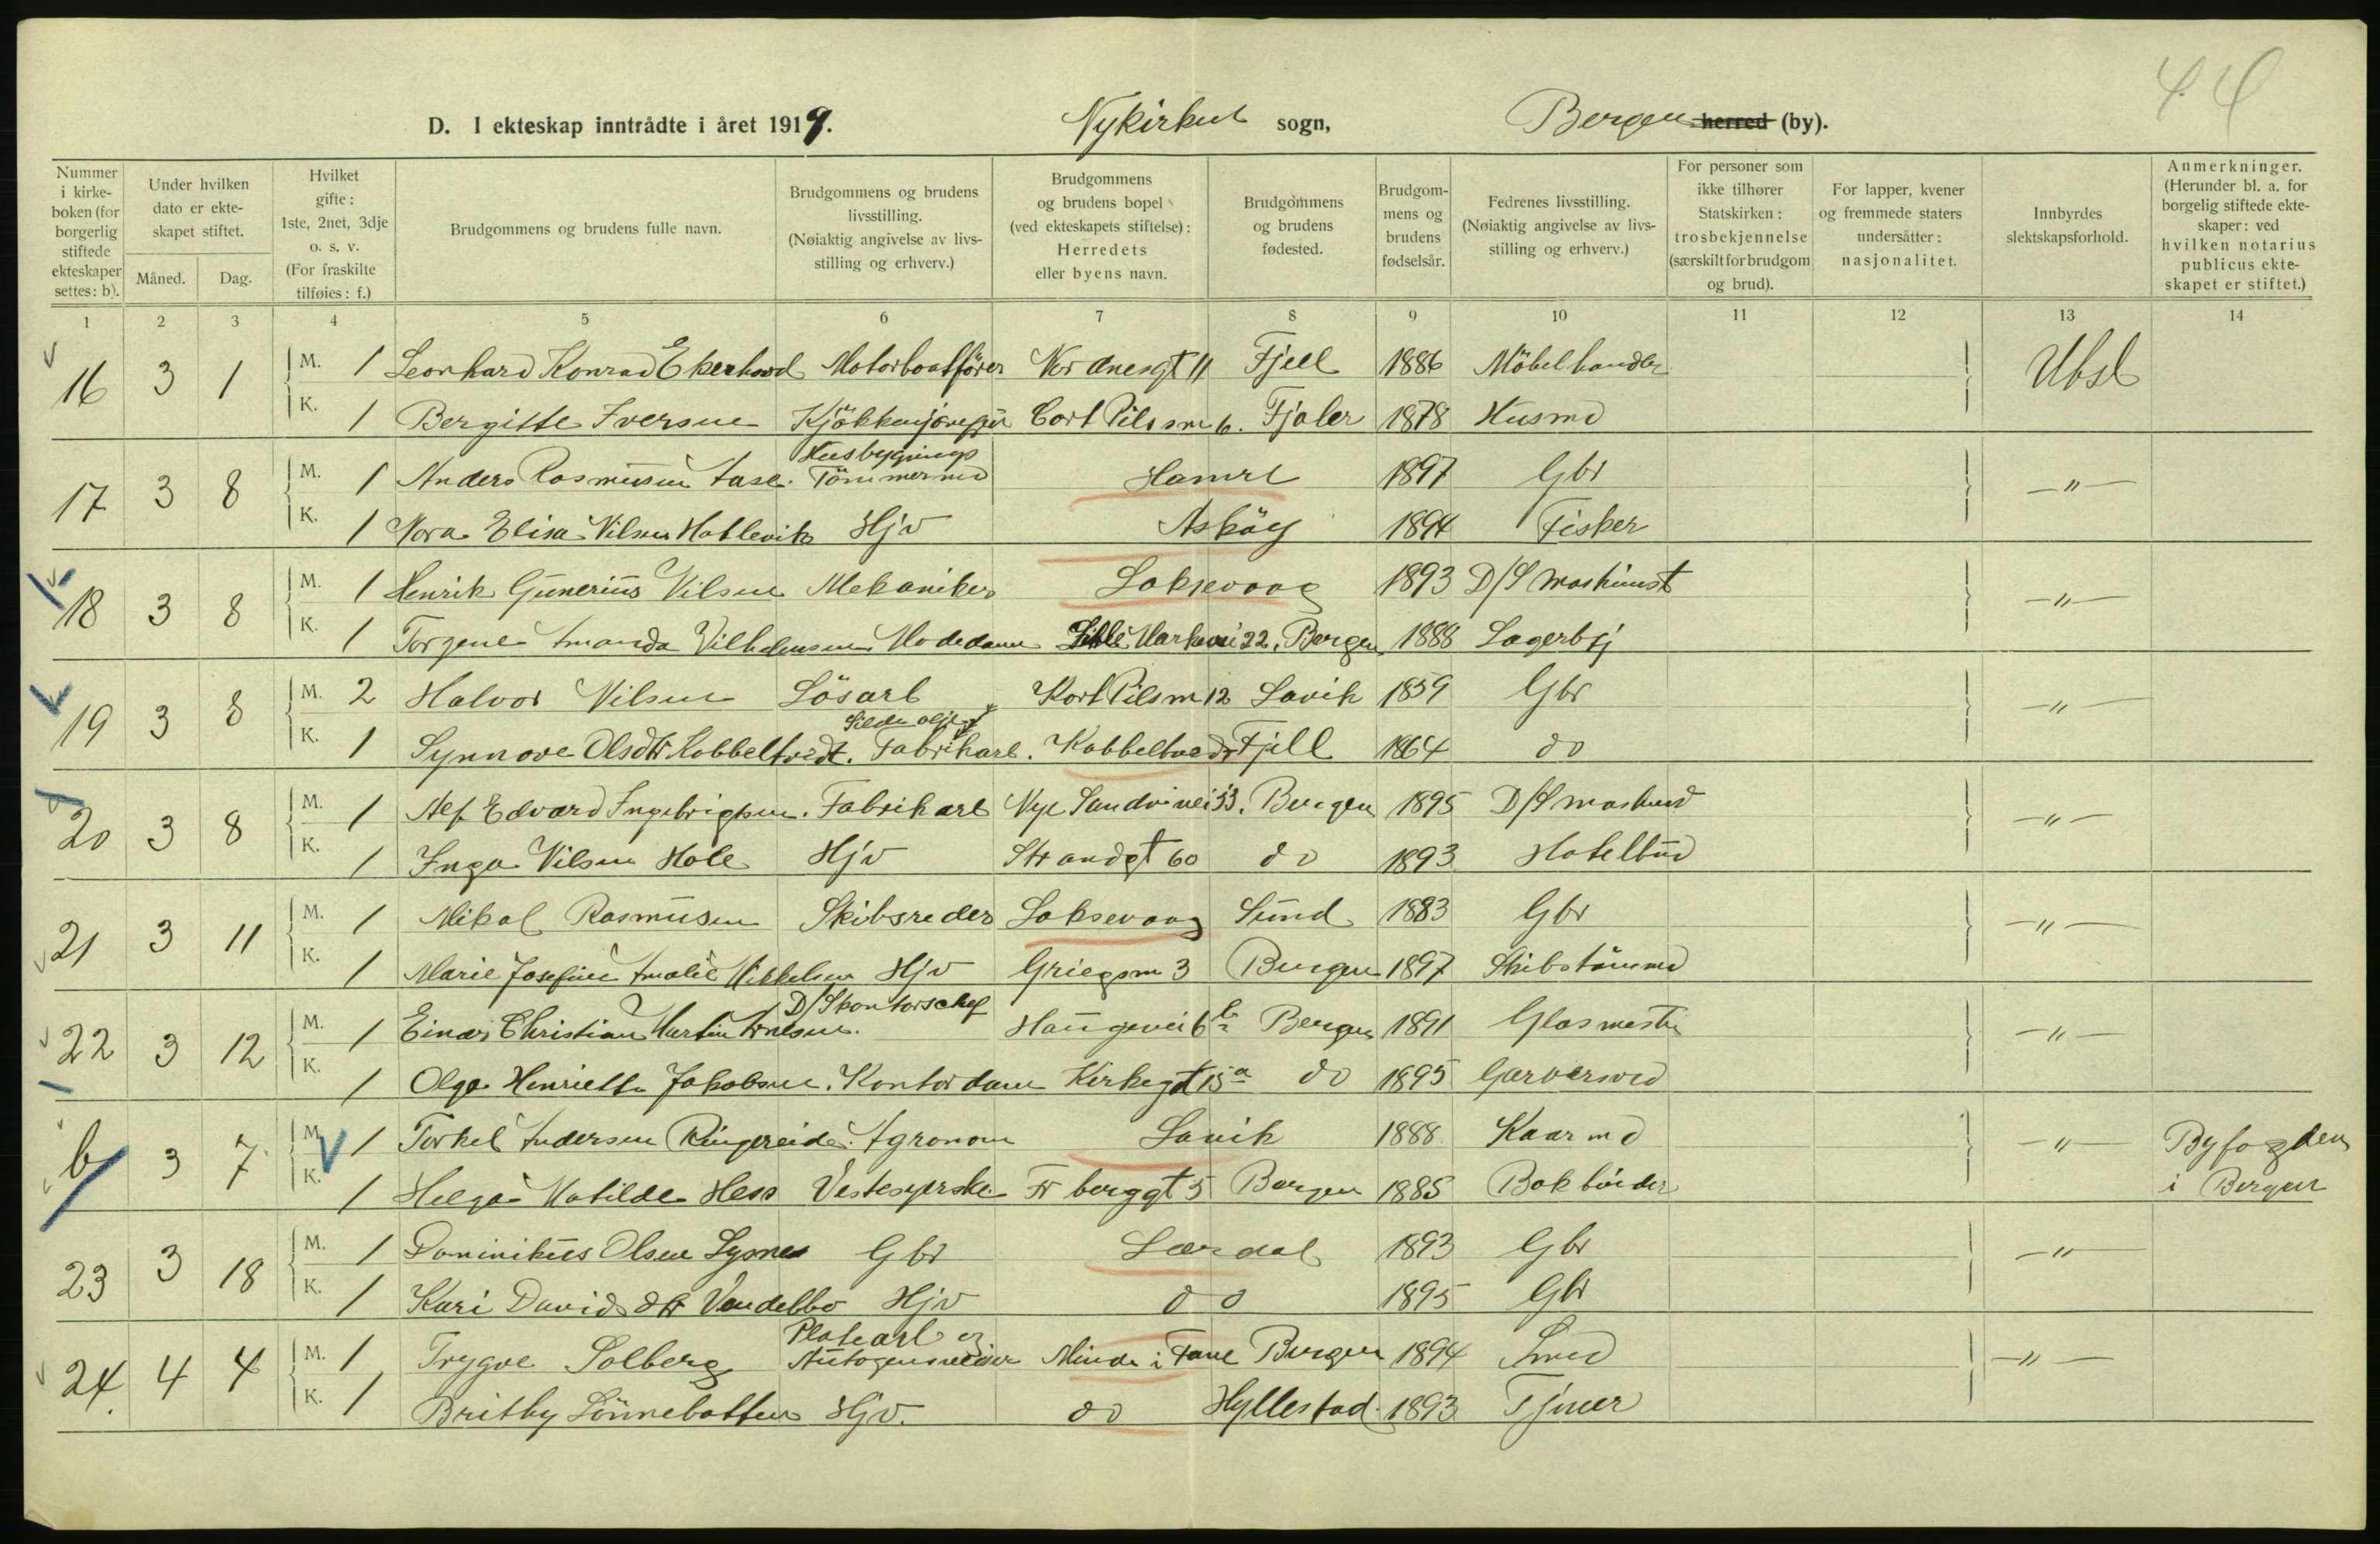 44
D. I ekteskap inntrådte i året 1919. Nykirken sogn, Bergen herred (by).
Nummer i kirkeboken (for borgerlig stiftede ekteskaper settes: b).
Under hvilken dato er ekteskapet stiftet.
Måned. Dag.
Hvilket gifte: 1ste, 2net, 3dje o. s. v. (For fraskilte tilføies: f.)
Brudgommens og brudens fulle navn.
Brudgommens og brudens livsstilling. (Nøiaktig angivelse av livsstilling og erhverv.)
Brudgommens og brudens bopel (ved ekteskapets stiftelse): Herredets eller byens navn.
Brudgommens og brudens fødested.
Brudgommens og brudens fødselsår.
Fedrenes livsstilling. (Nøiaktig angivelse av livsstilling og erhverv.)
For personer som ikke tilhører Statskirken: trosbekjennelse (særskilt for brudgom og brud).
For lapper, kvener og fremmede staters undersåtter: nasjonalitet.
Innbyrdes slektskapsforhold.
Anmerkninger. (Herunder bl. a. for borgelig stiftede ekteskaper: ved hvilken notarius publicus ekteskapet er stiftet.)
1 2 3 4 5 6 7 8 9 10 11 12 13 14
16 3 1 M. 1 Leonhard Konrad Ekerhovd Motorbootförer Nordnesgt 11 Fjell 1886 Möbelhandler Ubsl
K. 1 Bergitte Iversen Cort Pilssm 6. Fjaler 1878 Husmd
Husbygnings
17 3 8 M. 1 Anders Rasmusen Aase. Tömmermd Hamre 1897 Gbr -"-
K. 1 Nora Elisa Nilsen Hatlevik Hjv Asköy 1894 Fisker
18 3 8 M. 1 Henrik Gunerius Nilsen Mekaniker Laksevaag 1893 D/S maskinist -"-
K. 1 Torgene Amanda Vilhelmsen Modedame Lille Markevei 22. Bergen 1888 Lagerbtj
19 3 8 M. 2 Halvor Nilsen Lösarb Kort Pilsm 12 Lavik 1859 Gbr -"-
Sildeolje
K. 1 Synnove Olsdtr Kobbeltvedt. Fabrikarb. Kobbeltvedt Fjell 1864 do
20 3 8 M. 1 Alf Edvard Ingebrigtsen. Fabrikarb Nye Sandviksvei 53. Bergen 1895 D/S maskinist -"-
K. 1 Inga Nilsen Hole Hjv Strandgt 60 do 1893 Hotelbud
21 3 11 M. 1 Mikal Rasmusen Skibsreder Laksevaag Sund 1883 Gbr -"-
K. 1 Marie Josefine Amalie Mikkelsen Hjv Griegsm 3 Bergen 1897 Skibstömmd
D/S kontorschef
22 3 12 M. 1 Einar Christian Martin Arnesen. Haugevei 6 b Bergen 1891 Glasmester -"-
K. 1 Olga Henriette Jakobsen. Kontordame Kirkegt 15 a do 1895 Garversvd
b 3 7 M. 1 Torkel Andersen Ringereide. Agronom Lavik 1888 Kaarmd -"- Byfogden
K. 1 Helga Matilde Hess Vestesyerske Frberggt 5 Bergen 1885 Bokbinder i Bergen
23 3 18 M. 1 Dominikus Olsen Lysnes Gbr Lærdal 1893 Gbr -"-
K. 1 Kari Davidsdtr Vendelbo Hjv do 1895 Gbr
Platearb og
24. 4 4 M. 1 Trygve Solberg Autogensveiser Minde i Fane Bergen 1894 Smed -"-
K. 1 Brithy Lönnebotten Hjv. do Hyllestad 1893